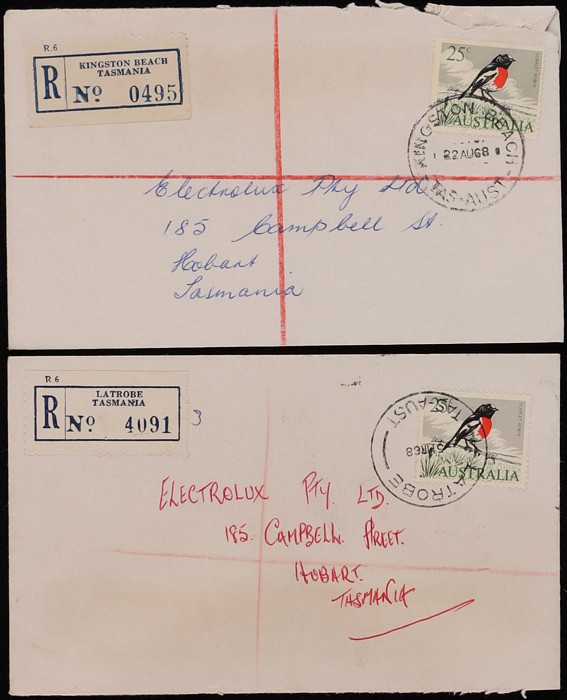 R.6
KINGSTON BEACH
TASMANIA
R No 0495
25c
SCARLET ROBIN
AUSTRALIA
KINGSTON BEACH
22 AU 68
TAS-AUST
Electrolux Pty Ltd
185 Campbell St.
Hobart
Tasmania
R 6
LATROBE
TASMANIA
R No 4091
3
SCARLET ROBIN
AUSTRALIA
LATROBE
68
TAS-AUST
ELECTROLUX PTY. LTD.
185. CAMPBELL STREET.
HOBART.
TASMANIA